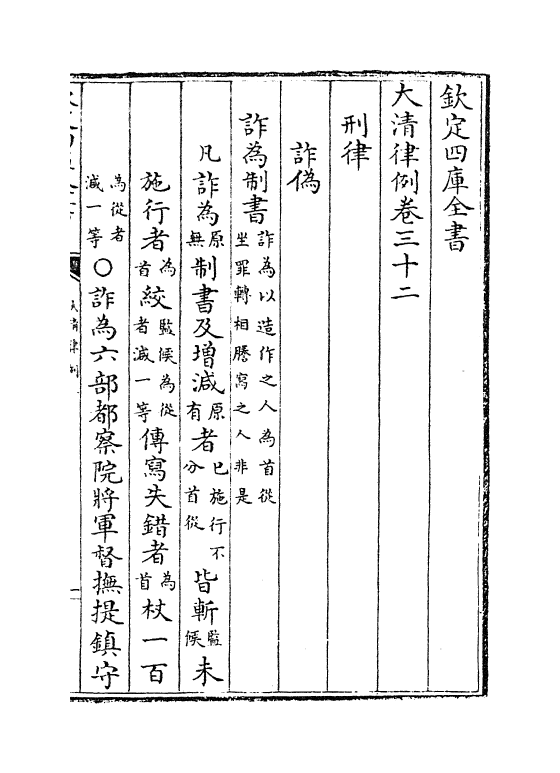 欽定四庫全書
大清律例卷三十二
刑律
詐偽
詐為制書詐為以造作之人為首從坐罪轉相謄寫之人非是
凡詐為原無制書及增減原有者已施行不分首從皆斬監候未
施行者為首絞監候為從者減一等傳寫失錯者為首杖一百
為從者減一等〇詐為六部都察院將軍督撫提鎮守
大清律例